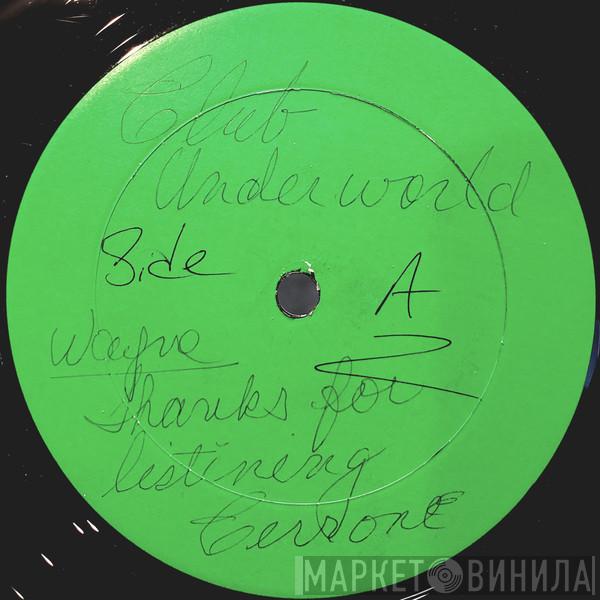 Club
Underworld
Side A
Wayne
thanks for
listining
Cerrone
МАРКЕТ ВИНИЛА